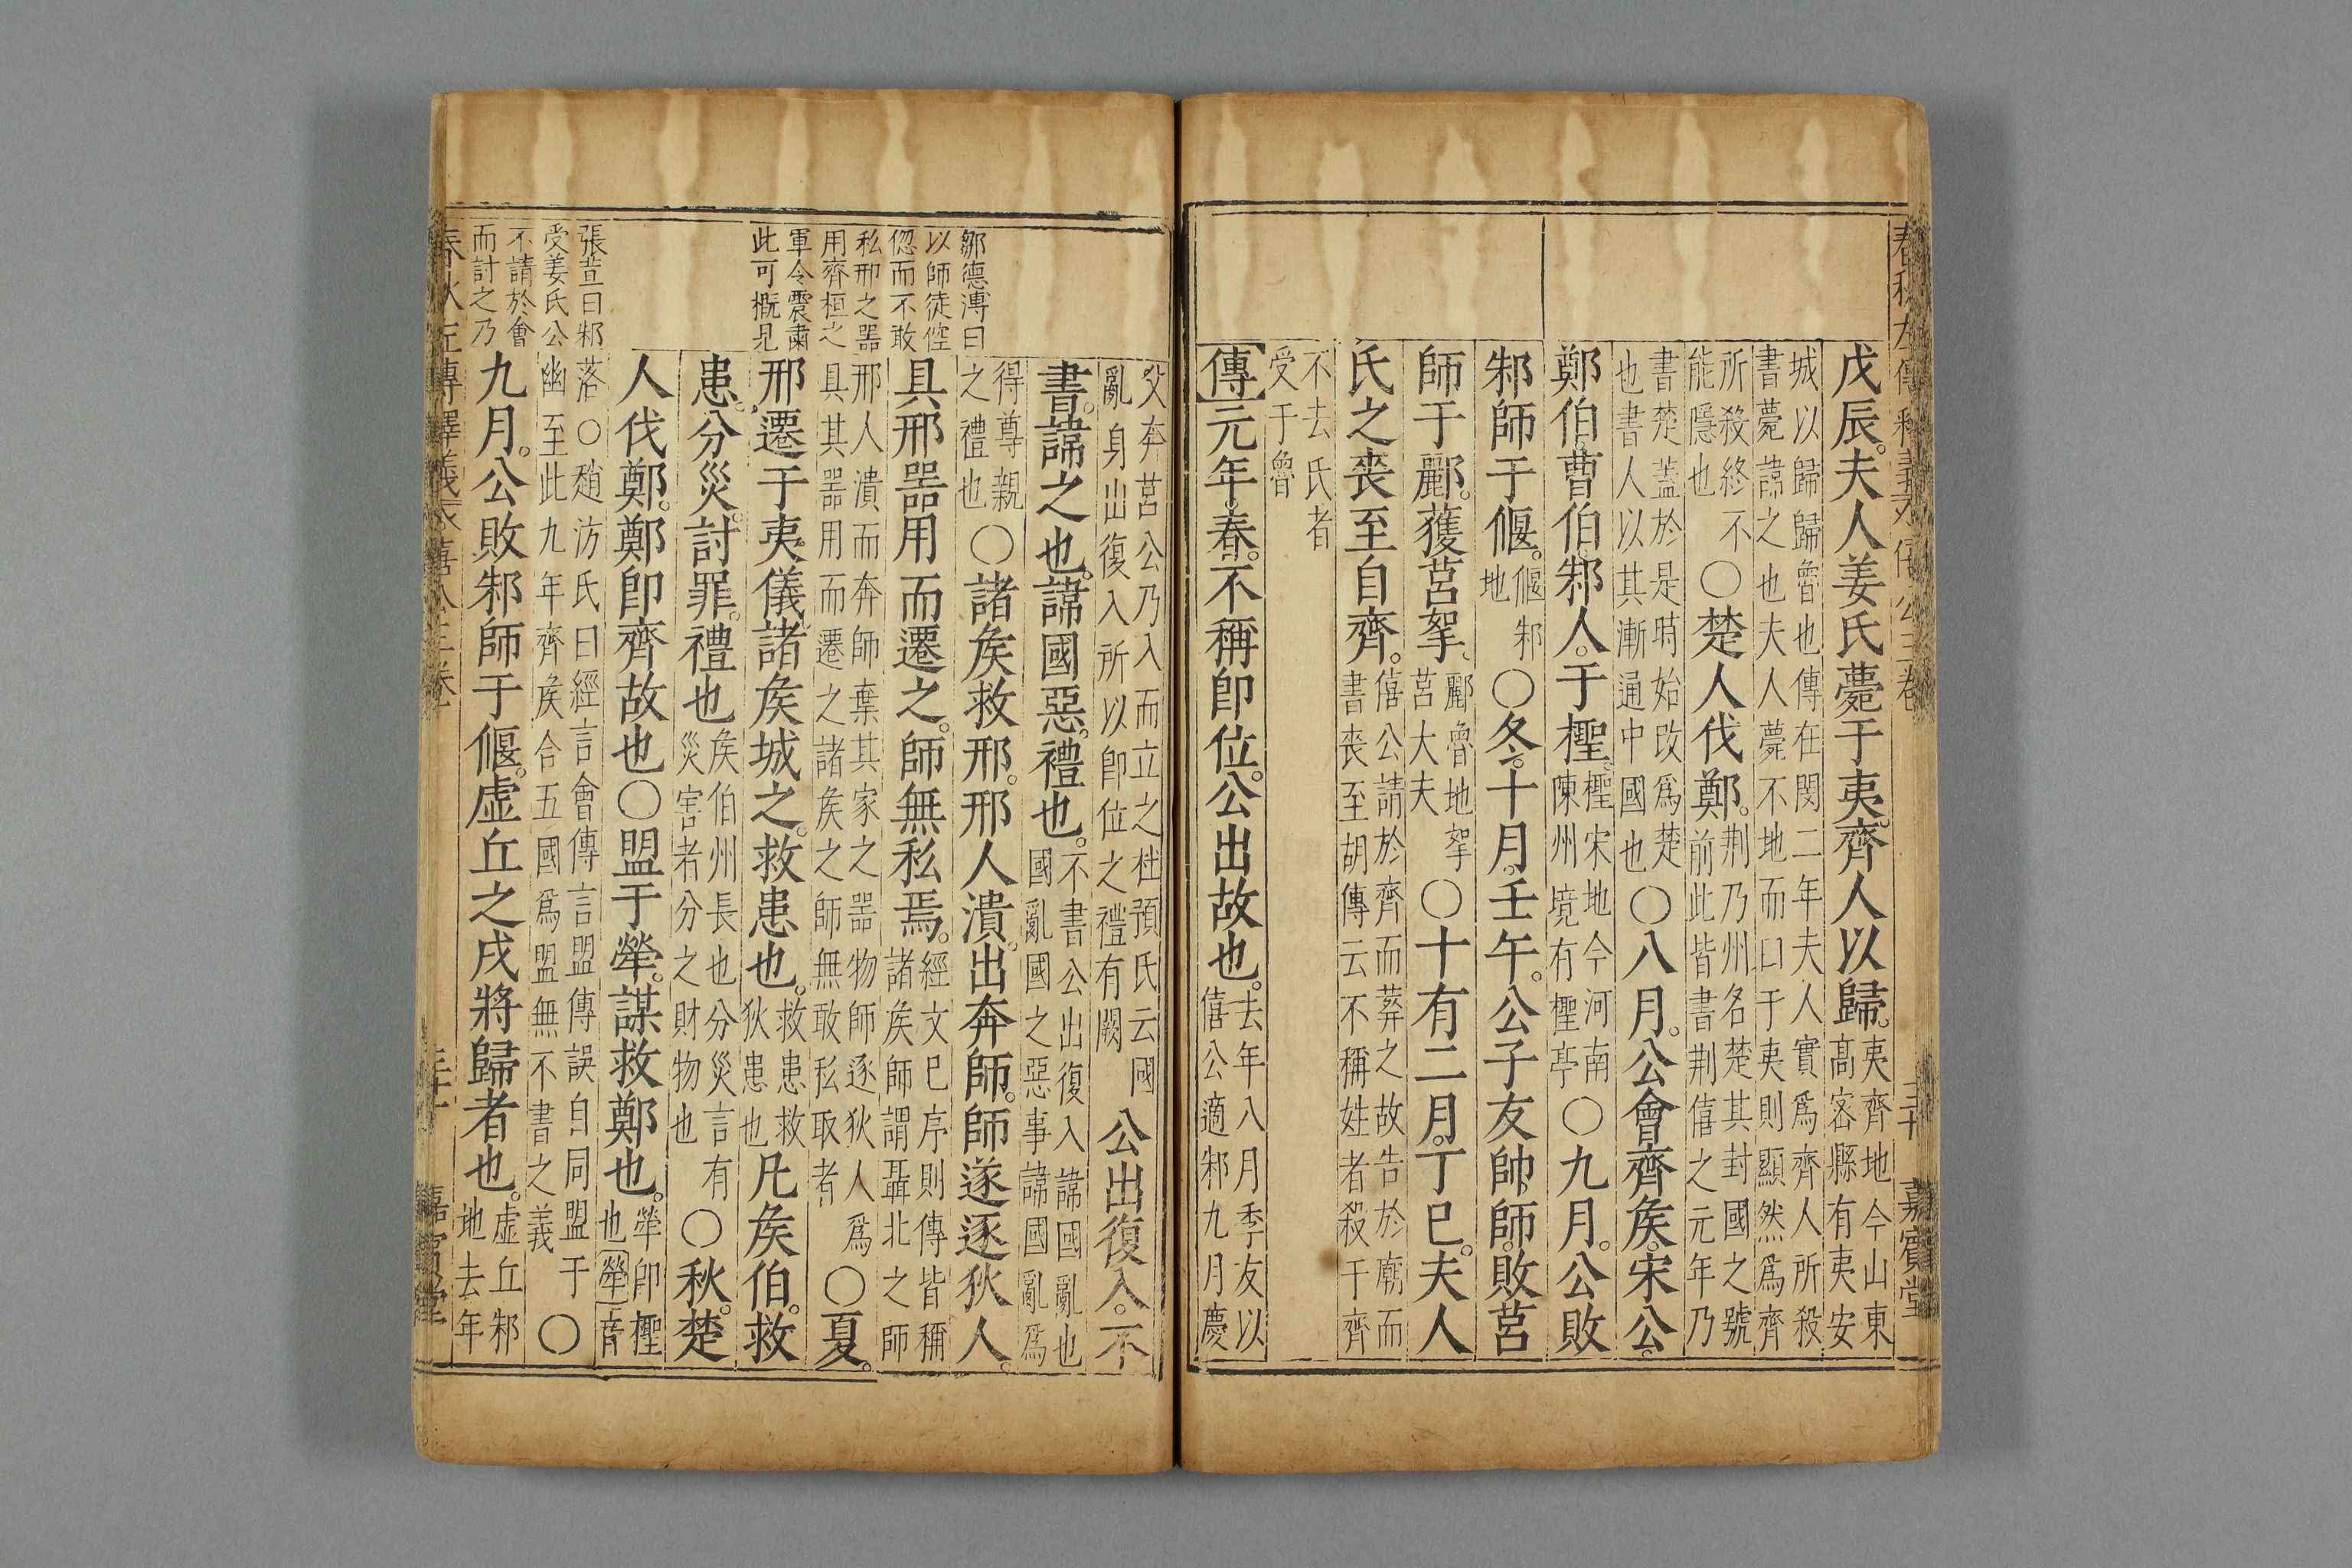 戊辰。夫人姜氏薨于夷。齊人以歸。夷齊地今山東高密縣有夷安
城以歸歸魯也傳在閔二年夫人實爲齊人所殺書薨諱之也夫人薨不地而曰于夷則顯然爲齊
所殺終不能隱也〇楚人伐鄭。荆乃州名楚其封國之號前此皆書荆僖之元年乃
書楚蓋於是時始改爲楚也書人以其漸通中國也〇八月。公會齊矦。宋公。
鄭伯。曹伯。邾人。于檉。檉宋地今河南陳州境有檉亭〇九月。公敗
邾師于偃。偃邾地〇冬。十月。壬午。公子友帥師。敗莒
師于酈。獲莒挐。酈魯地挐莒大夫〇十有二月。丁巳。夫人
氏之喪至自齊。僖公請於齊而葬之故告於廟而書喪至胡傳云不稱姓者殺于齊
不去氏者受于魯
傳元年。春。不稱卽位。公出故也。去年八月季友以僖公適邾九月慶
父奔莒公乃入而立之杜預氏云國亂身出復入所以卽位之禮有闕公出復入。不
書。諱之也。諱國惡。禮也。不書公出復入諱國亂也國亂國之惡事諱國亂爲
得尊親之禮也〇諸矦救邢。邢人潰。出奔師。師遂逐狄人。
具邢噐用而遷之。師無私焉。經文巳序則傳皆稱諸矦師謂聶北之師
邢人潰而奔師棄其家之噐物師逐狄人爲具其噐用而遷之諸矦之師無敢私取者〇夏。
邢遷于夷儀。諸矦城之。救患也。救患救狄患也凡矦伯。救
患。分災。討罪。禮也矦伯州長也分災言有災害者分之財物也〇秋。楚
人伐鄭。鄭卽齊故也〇盟于犖。謀救鄭也。犖卽檉也犖音
落〇趙汸氏曰經言會傳言盟傳誤自同盟于幽至此九年齊矦合五國爲盟無不書之義〇
九月。公敗邾師于偃。虛丘之戌將歸者也。虛丘邾地去年
鄒德溥曰
以師徒倥
偬而不敢
私邢之噐
用齊桓之
軍令震肅
此可概見
張萱曰邾
受姜氏公
不請於會
而討之乃
嘉賓堂